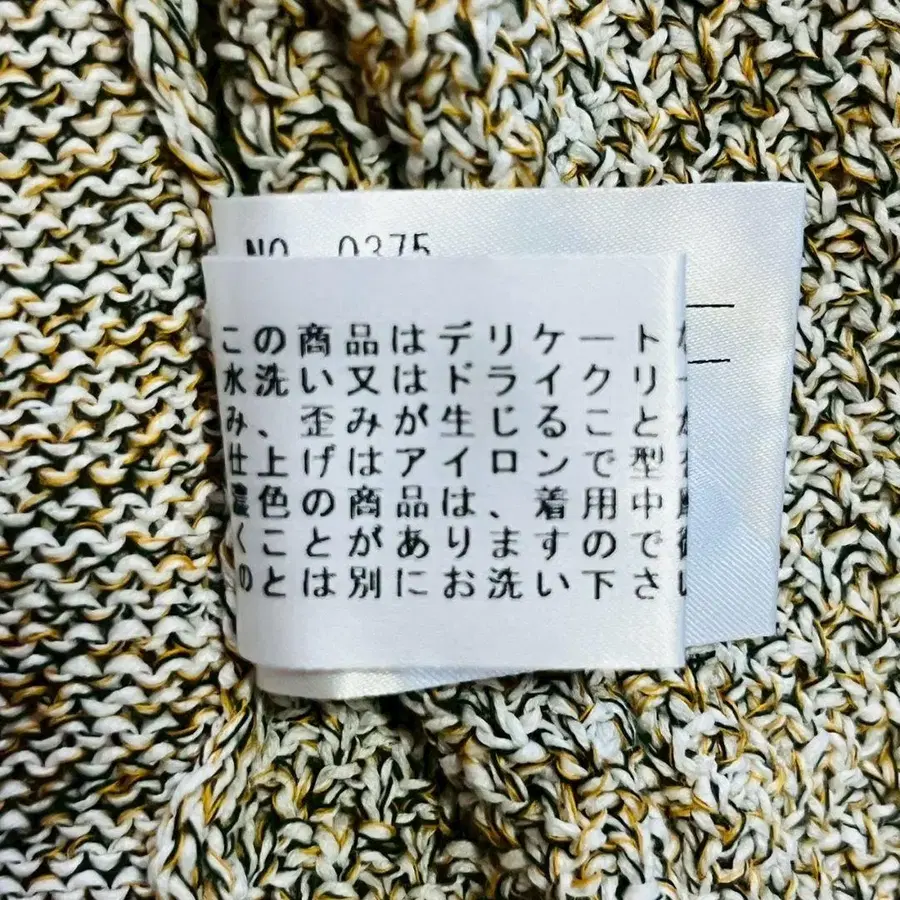 NO. 0375
この商品はデリケート
水洗い又はドライクリー
み、歪みが生じることが
仕上げはアイロンで型
濃色の商品は、着用中
くことがありますので
のとは別にお洗い下さい